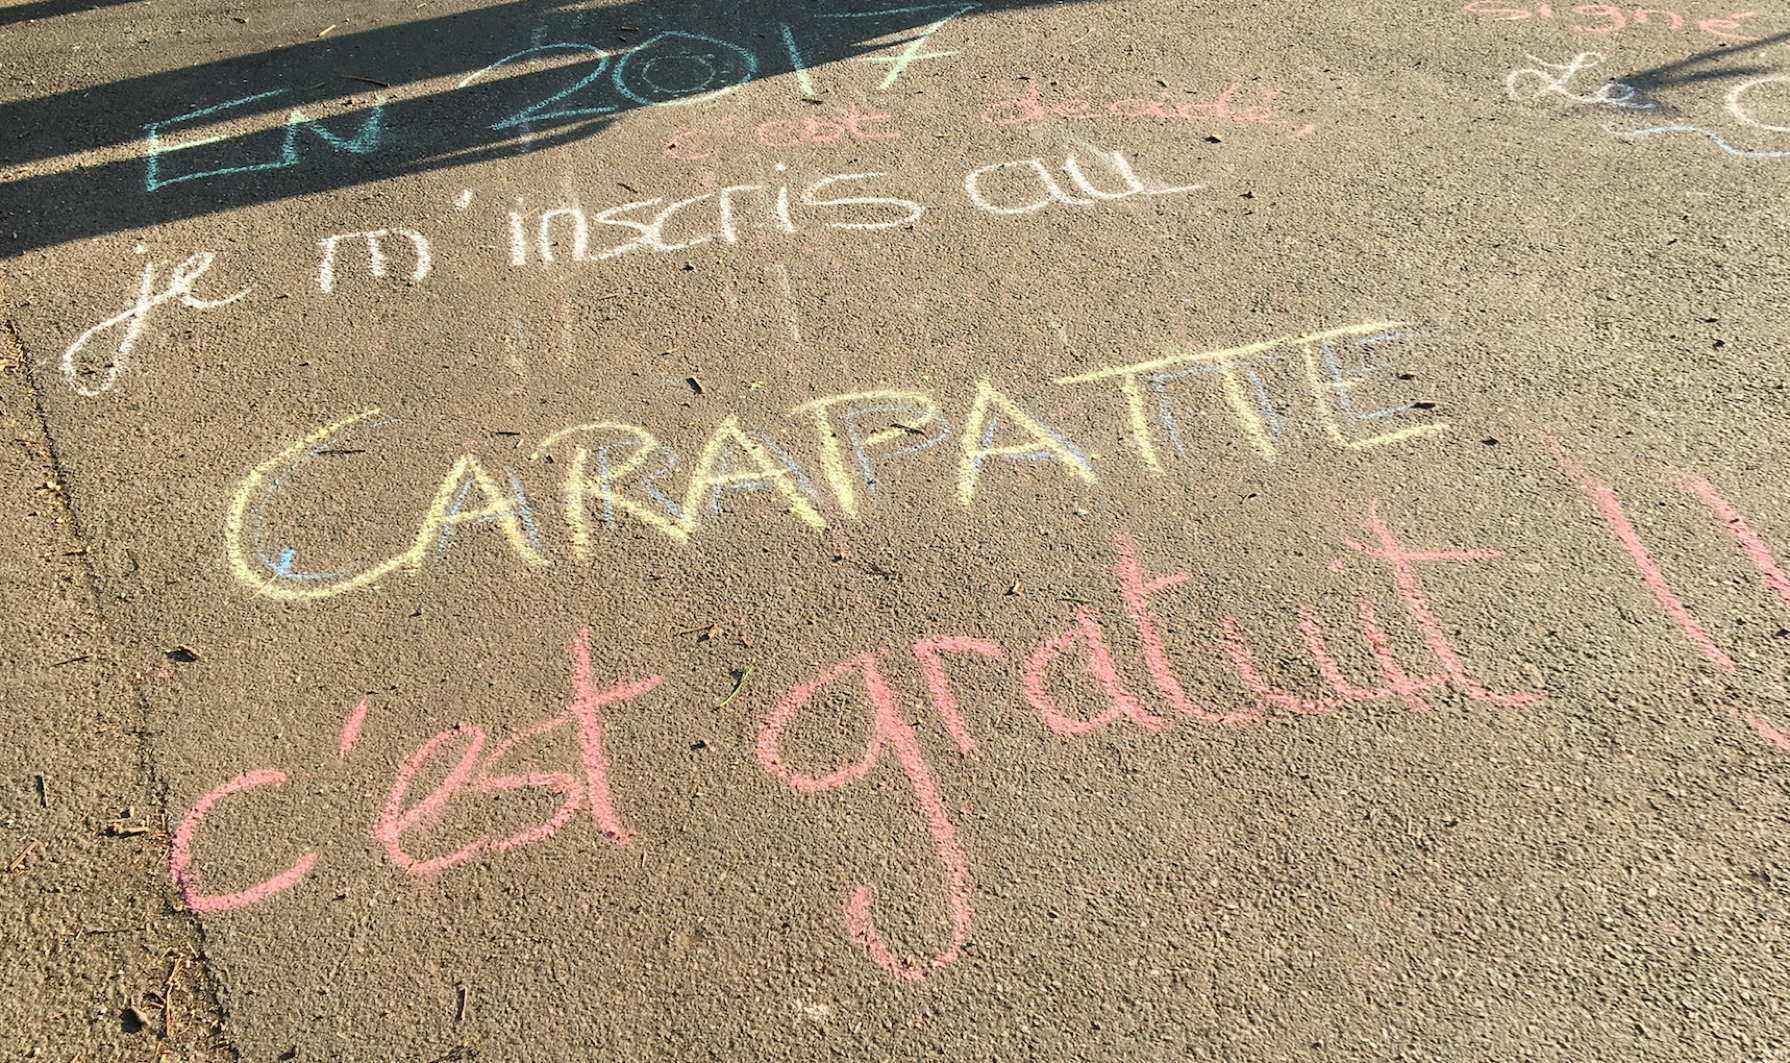 EN 2017
c'est décidé,
je m'inscris au
CARAPATTE
c'est gratuit !!
signé
Le